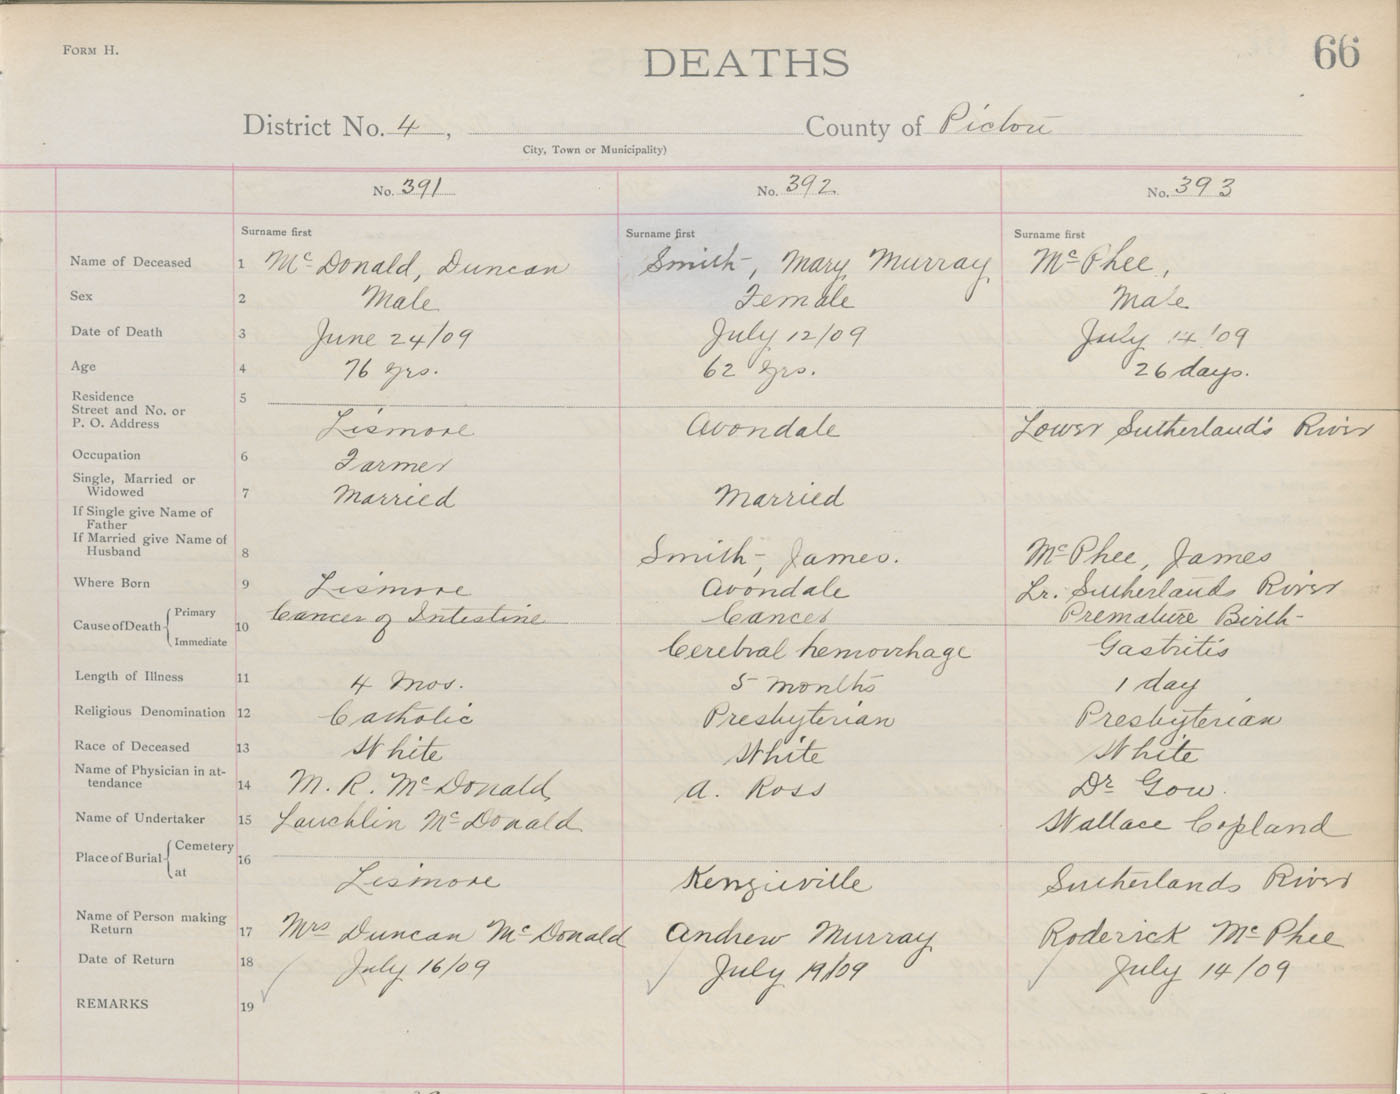 FORM H.
DEATHS
66
District No. 4, County of Pictou
City, Town or Municipality)
No. 391 No. 392 No. 393
Surname first Surname first Surname first
Name of Deceased 1 McDonald, Duncan Smith, Mary Murray McPhee,
Sex 2 Male Female Male
Date of Death 3 June 24/09 July 12/09 July 14/09
Age 4 76 yrs. 62 yrs. 26 days.
Residence 5
Street and No. or
P. O. Address Lismore Avondale Lower Sutherland's River
Occupation 6 Farmer
Single, Married or
Widowed 7 Married Married
If Single give Name of
Father
If Married give Name of
Husband 8 Smith, James. McPhee, James
Where Born 9 Lismore Avondale Lr. Sutherlands River
Cause of Death Primary 10 Cancer of Intestine Cancer Premature Birth
Immediate Cerebral hemorrhage Gastritis
Length of Illness 11 4 Mos. 5 months 1 day
Religious Denomination 12 Catholic Presbyterian Presbyterian
Race of Deceased 13 White White White
Name of Physician in at-
tendance 14 M. R. McDonald A. Ross Dr Gow.
Name of Undertaker 15 Lauchlin McDonald Wallace Copland
Place of Burial Cemetery 16
at Lismore Kenzieville Sutherlands River
Name of Person making
Return 17 Mrs Duncan McDonald Andrew Murray Roderick McPhee
Date of Return 18 July 16/09 July 19/09 July 14/09
REMARKS 19